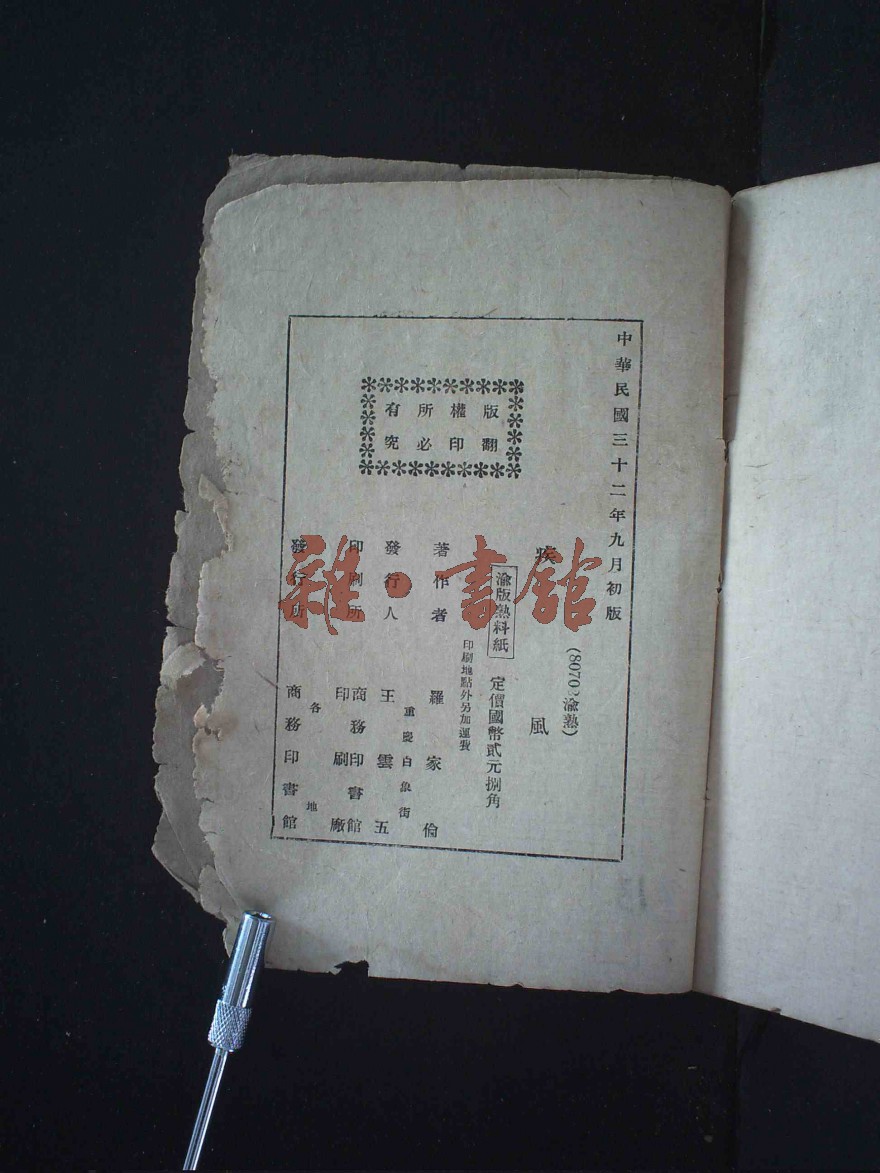 中華民國三十二年九月初版
(8070 渝熟)
疾風
渝版熟料紙 定價國幣貳元捌角
印刷地點外另加運費
著作者 羅家倫
發行人 王雲五
重慶白象街
印刷所 商務印書館印刷廠
發行所 各地商務印書館
版權所有
翻印必究
雜·書館